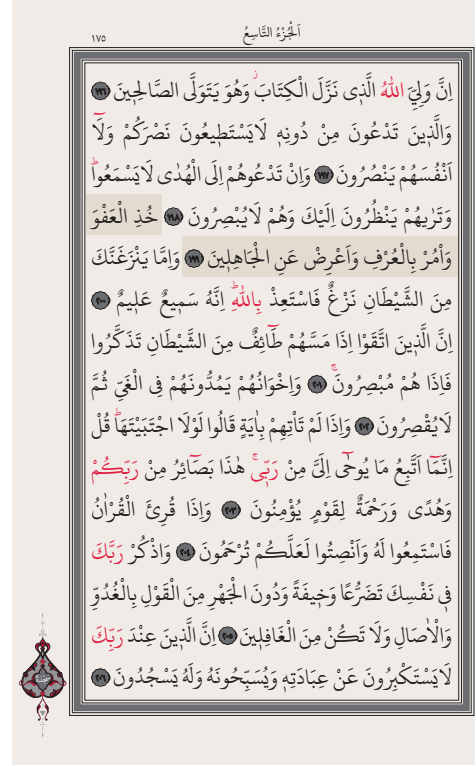 اَلْجُزْءُ التَّاسِعُ
١٧٥
اِنَّ وَلِيِّيَ اللّٰهُ الَّذ۪ي نَزَّلَ الْكِتَابَۘ وَهُوَ يَتَوَلَّى الصَّالِح۪ينَ ١٩٦
وَالَّذ۪ينَ تَدْعُونَ مِنْ دُونِه۪ لَا يَسْتَط۪يعُونَ نَصْرَكُمْ وَلَٓا
اَنْفُسَهُمْ يَنْصُرُونَ ١٩٧ وَاِنْ تَدْعُوهُمْ اِلَى الْهُدٰى لَا يَسْمَعُواۜ
وَتَرٰيهُمْ يَنْظُرُونَ اِلَيْكَ وَهُمْ لَا يُبْصِرُونَ ١٩٨ خُذِ الْعَفْوَ
وَأْمُرْ بِالْعُرْفِ وَاَعْرِضْ عَنِ الْجَاهِل۪ينَ ١٩٩ وَاِمَّا يَنْزَغَنَّكَ
مِنَ الشَّيْطَانِ نَزْغٌ فَاسْتَعِذْ بِاللّٰهِۜ اِنَّهُ سَم۪يعٌ عَل۪يمٌ ٢٠٠
اِنَّ الَّذ۪ينَ اتَّقَوْا اِذَا مَسَّهُمْ طَٓائِفٌ مِنَ الشَّيْطَانِ تَذَكَّرُوا
فَاِذَا هُمْ مُبْصِرُونَۚ ٢٠١ وَاِخْوَانُهُمْ يَمُدُّونَهُمْ فِي الْغَيِّ ثُمَّ
لَا يُقْصِرُونَ ٢٠٢ وَاِذَا لَمْ تَأْتِهِمْ بِاٰيَةٍ قَالُوا لَوْلَا اجْتَبَيْتَهَاۜ قُلْ
اِنَّمَٓا اَتَّبِعُ مَا يُوحٰٓى اِلَيَّ مِنْ رَبّ۪يۚ هٰذَا بَصَٓائِرُ مِنْ رَبِّكُمْ
وَهُدًى وَرَحْمَةٌ لِقَوْمٍ يُؤْمِنُونَ ٢٠٣ وَاِذَا قُرِئَ الْقُرْاٰنُ
فَاسْتَمِعُوا لَهُ وَاَنْصِتُوا لَعَلَّكُمْ تُرْحَمُونَ ٢٠٤ وَاذْكُرْ رَبَّكَ
ف۪ي نَفْسِكَ تَضَرُّعًا وَخ۪يفَةً وَدُونَ الْجَهْرِ مِنَ الْقَوْلِ بِالْغُدُوِّ
وَالْاٰصَالِ وَلَا تَكُنْ مِنَ الْغَافِل۪ينَ ٢٠٥ اِنَّ الَّذ۪ينَ عِنْدَ رَبِّكَ
لَا يَسْتَكْبِرُونَ عَنْ عِبَادَتِه۪ وَيُسَبِّحُونَهُ وَلَهُ يَسْجُدُونَ ٢٠٦